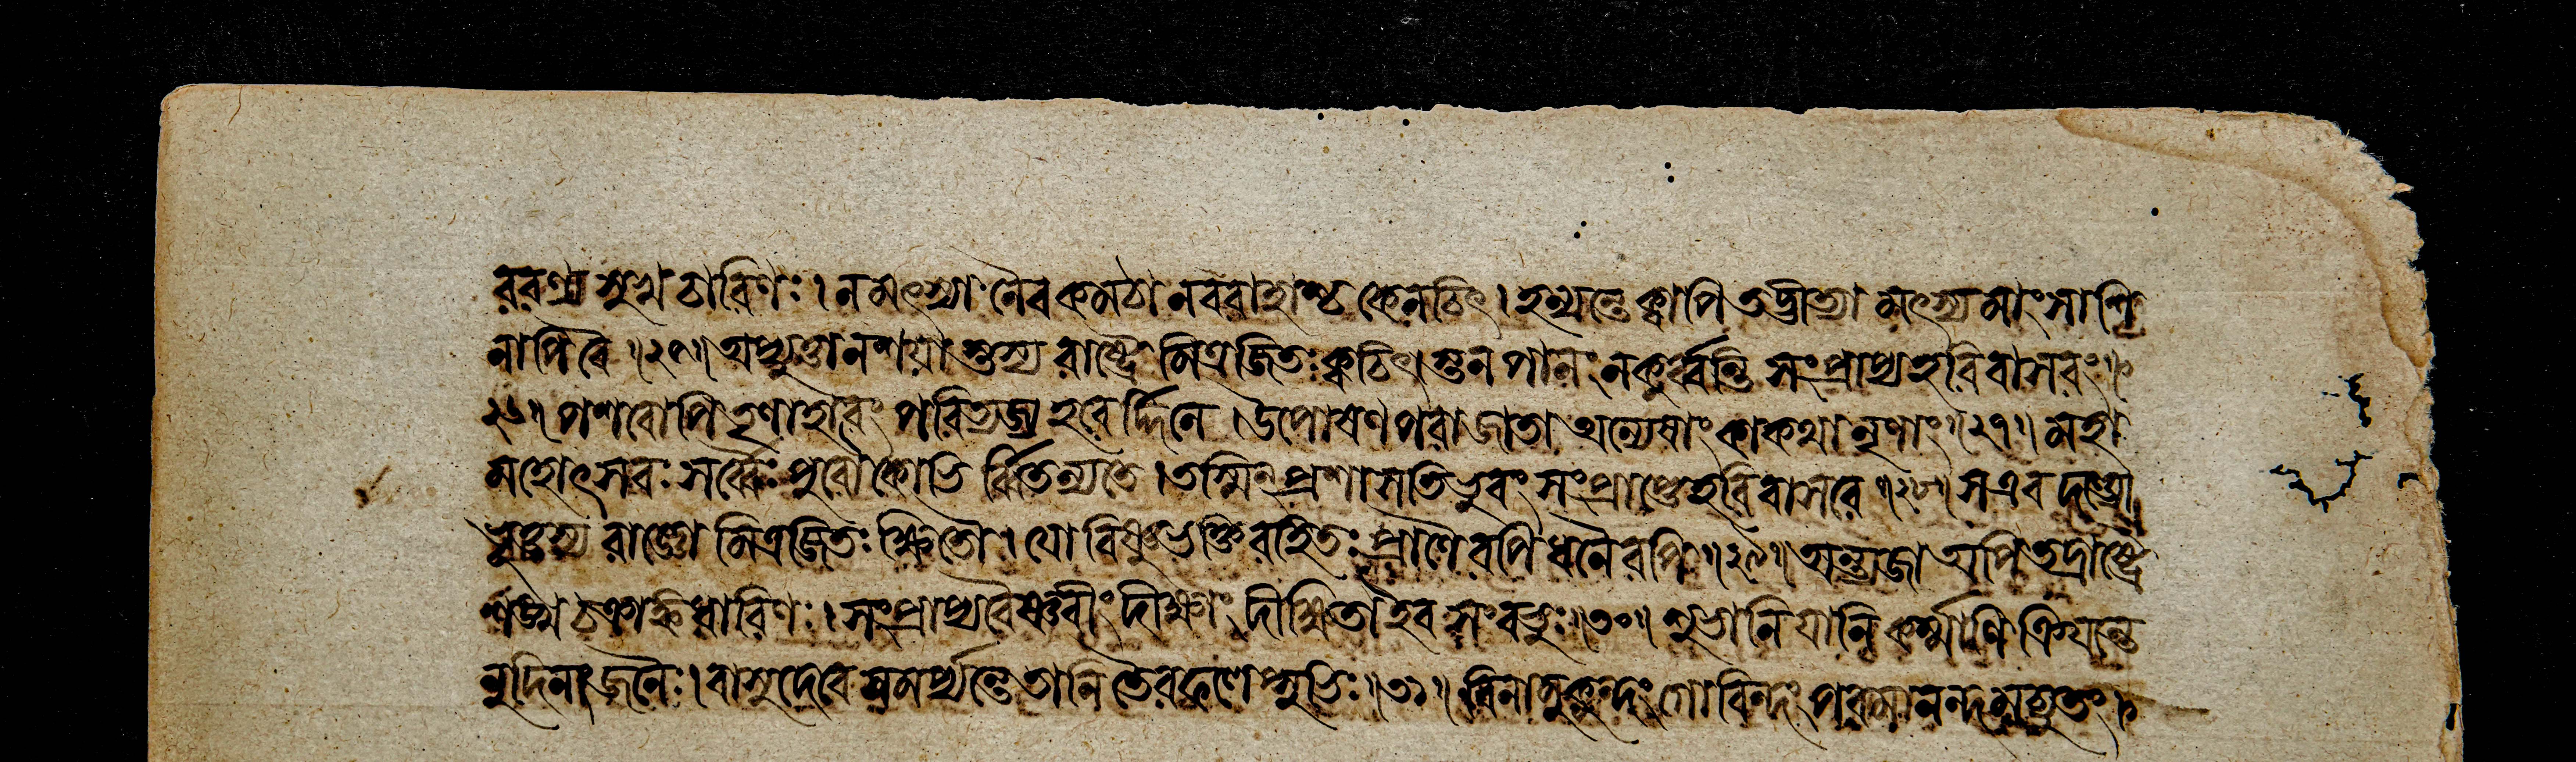 ররণ্য সুখ চারিণঃ । ন মৎস্যা নৈব কমঠা ন বরাহাশ্চ কেনচিৎ । হন্যন্তে ক্বাপি তদ্ভীত্যা মৎস্য মাংসাশি
নাপি বৈ ॥ ২৫ ॥ অপ্যুত্তানশয়া স্তস্য রাষ্ট্রে মিত্রজিতঃ ক্বচিৎ । স্তন পানং ন কুর্ব্বন্তি সংপ্রাপ্য হরিবাসরং ॥
২৬ ॥ পশবোপি তৃণাহারং পরিত্যজ্য হরের্দ্দিনে । উপোষণ পরা জাতা অন্যেষাং কা কথা নৃণাং ॥ ২৭ ॥ মহা
মহোৎসবঃ সর্ব্বৈঃ পুরৌকোভি র্ব্বিতন্যতে । তস্মিন্ প্রশাসতি ভুবং সংপ্রাপ্তে হরিবাসরে ॥ ২৮ ॥ স এব দণ্ড্যো
ভূত্তস্য রাজ্ঞো মিত্রজিতঃ ক্ষিতৌ । যো বিষ্ণুভক্তি রহিতঃ প্রাণৈ রপি ধনৈ রপি ॥ ২৯ ॥ অন্ত্যজা অপি তদ্রাষ্ট্রে
শঙ্খ চক্রাঙ্ক ধারিণঃ । সংপ্রাপ্য বৈষ্ণবীং দীক্ষাং দীক্ষিতা ইব সংবভুঃ ॥ ৩০ ॥ শুভানি যানি কর্ম্মাণি ক্রিয়ন্তে
নুদিনং জনৈঃ । বাসুদেবে সমর্প্যন্তে তানি তৈরফলেপ্সুভিঃ ॥ ৩১ ॥ বিনা মুকুন্দং গোবিন্দং পরমানন্দমচ্যুতং ।